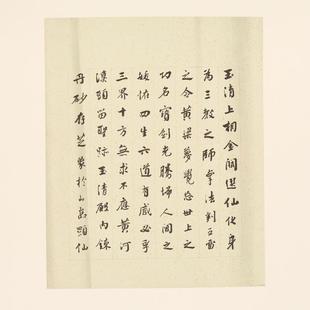 玉清上相金闕選仙化身
為三教之師掌法判五雷
之令黃梁夢覺忘世上之
功名寶劍光騰掃人間之
妖怪四生六道有感必孚
三界十方無求不應黃河
頭留聖跡玉清殿內鍊
丹砂存芝象於山岩顯仙